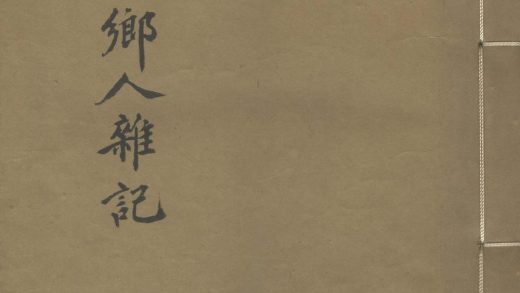 鄉人雜記